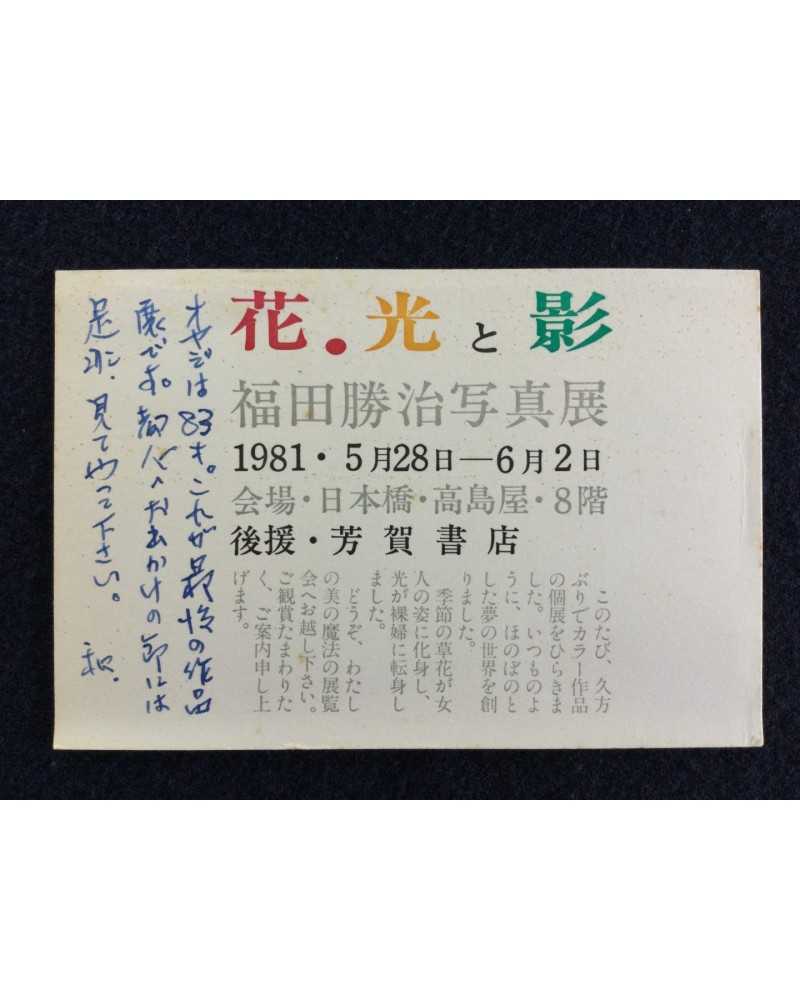 花・光と影
福田勝治写真展
1981・5月28日—6月2日
会場・日本橋・高島屋・8階
後援・芳賀書店
このたび、久方
ぶりでカラー作品
の個展をひらきま
した。いつものよ
うに、ほのぼのと
した夢の世界を創
りました。
季節の草花が女
人の姿に化身し、
光が裸婦に転身し
ました。
どうぞ、わたし
の美の魔法の展覧
会へお越し下さい。
ご観賞たまわりた
く、ご案内申し上
げます。
オヤジは83才。これが最後の作品
展です。都心へお出かけの節には
是非、見てやって下さい。
和.